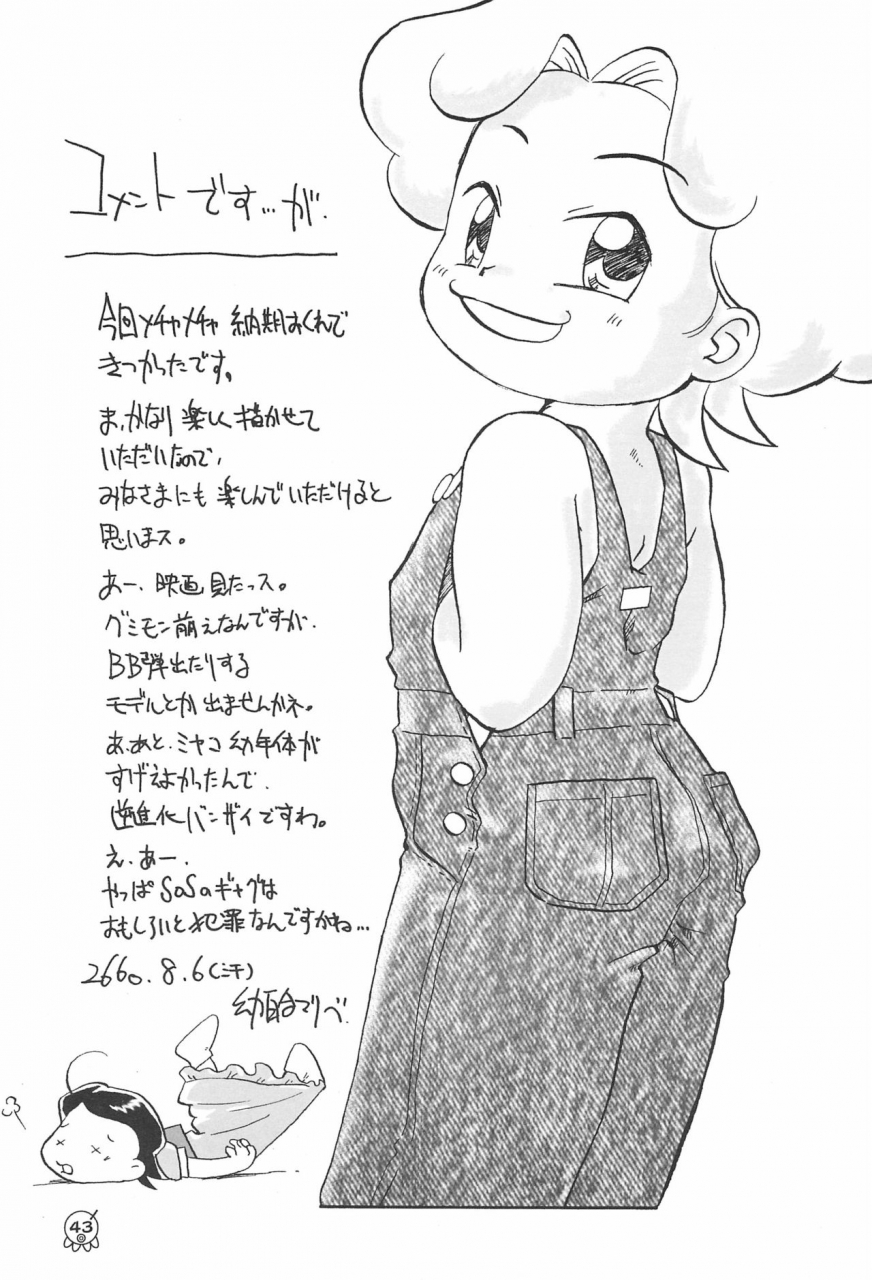 コメントです…が.
今回メチャメチャ 納期おくれで
きつかったです。
ま、かなり楽しく描かせて
いただいたので、
みなさまにも楽しんでいただけると
思いまス。
あー、映画見たっス。
グミモン萌えなんですが、
BB弾出たりする
モデルとか出ませんかネ。
あ、あと、ミヤコ幼年体が
すげえよかったんで、
逆進化バンザイですわ。
え、あー、
やっぱSOSのギャグは
おもしろいと犯罪なんですかね…
2660.8.6
43